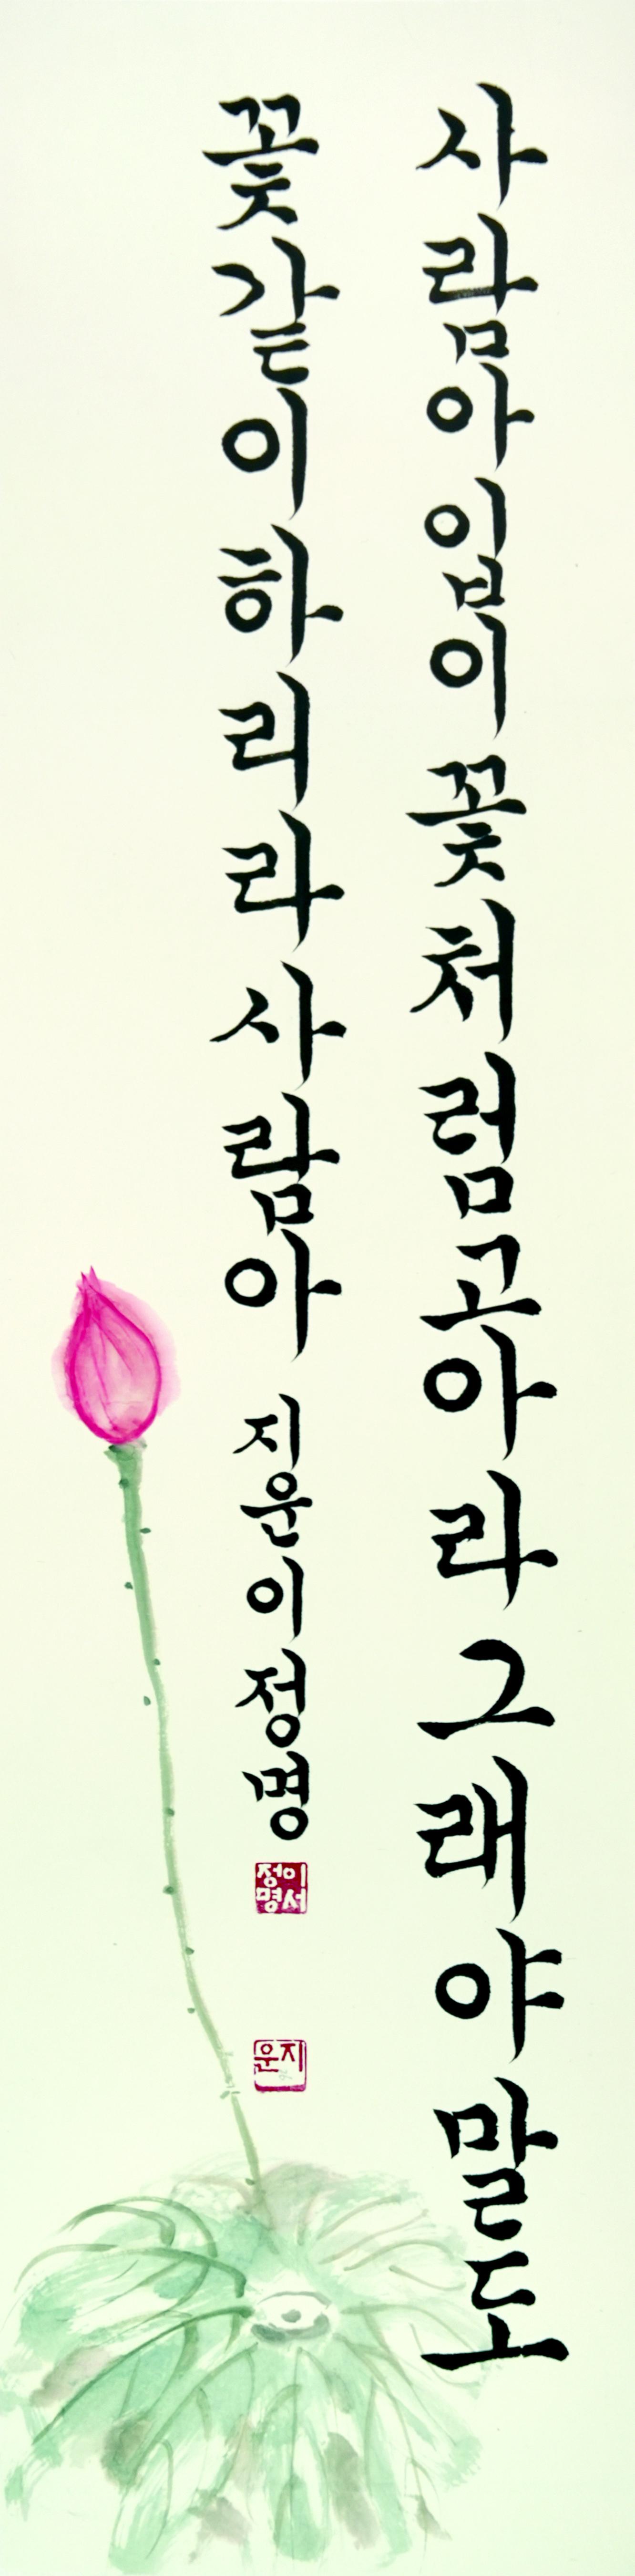 사람아 입이 꽃처럼 고아라 그래야 말도
꽃같이 하리라 사람아
지운 이정명
이정명서
지운